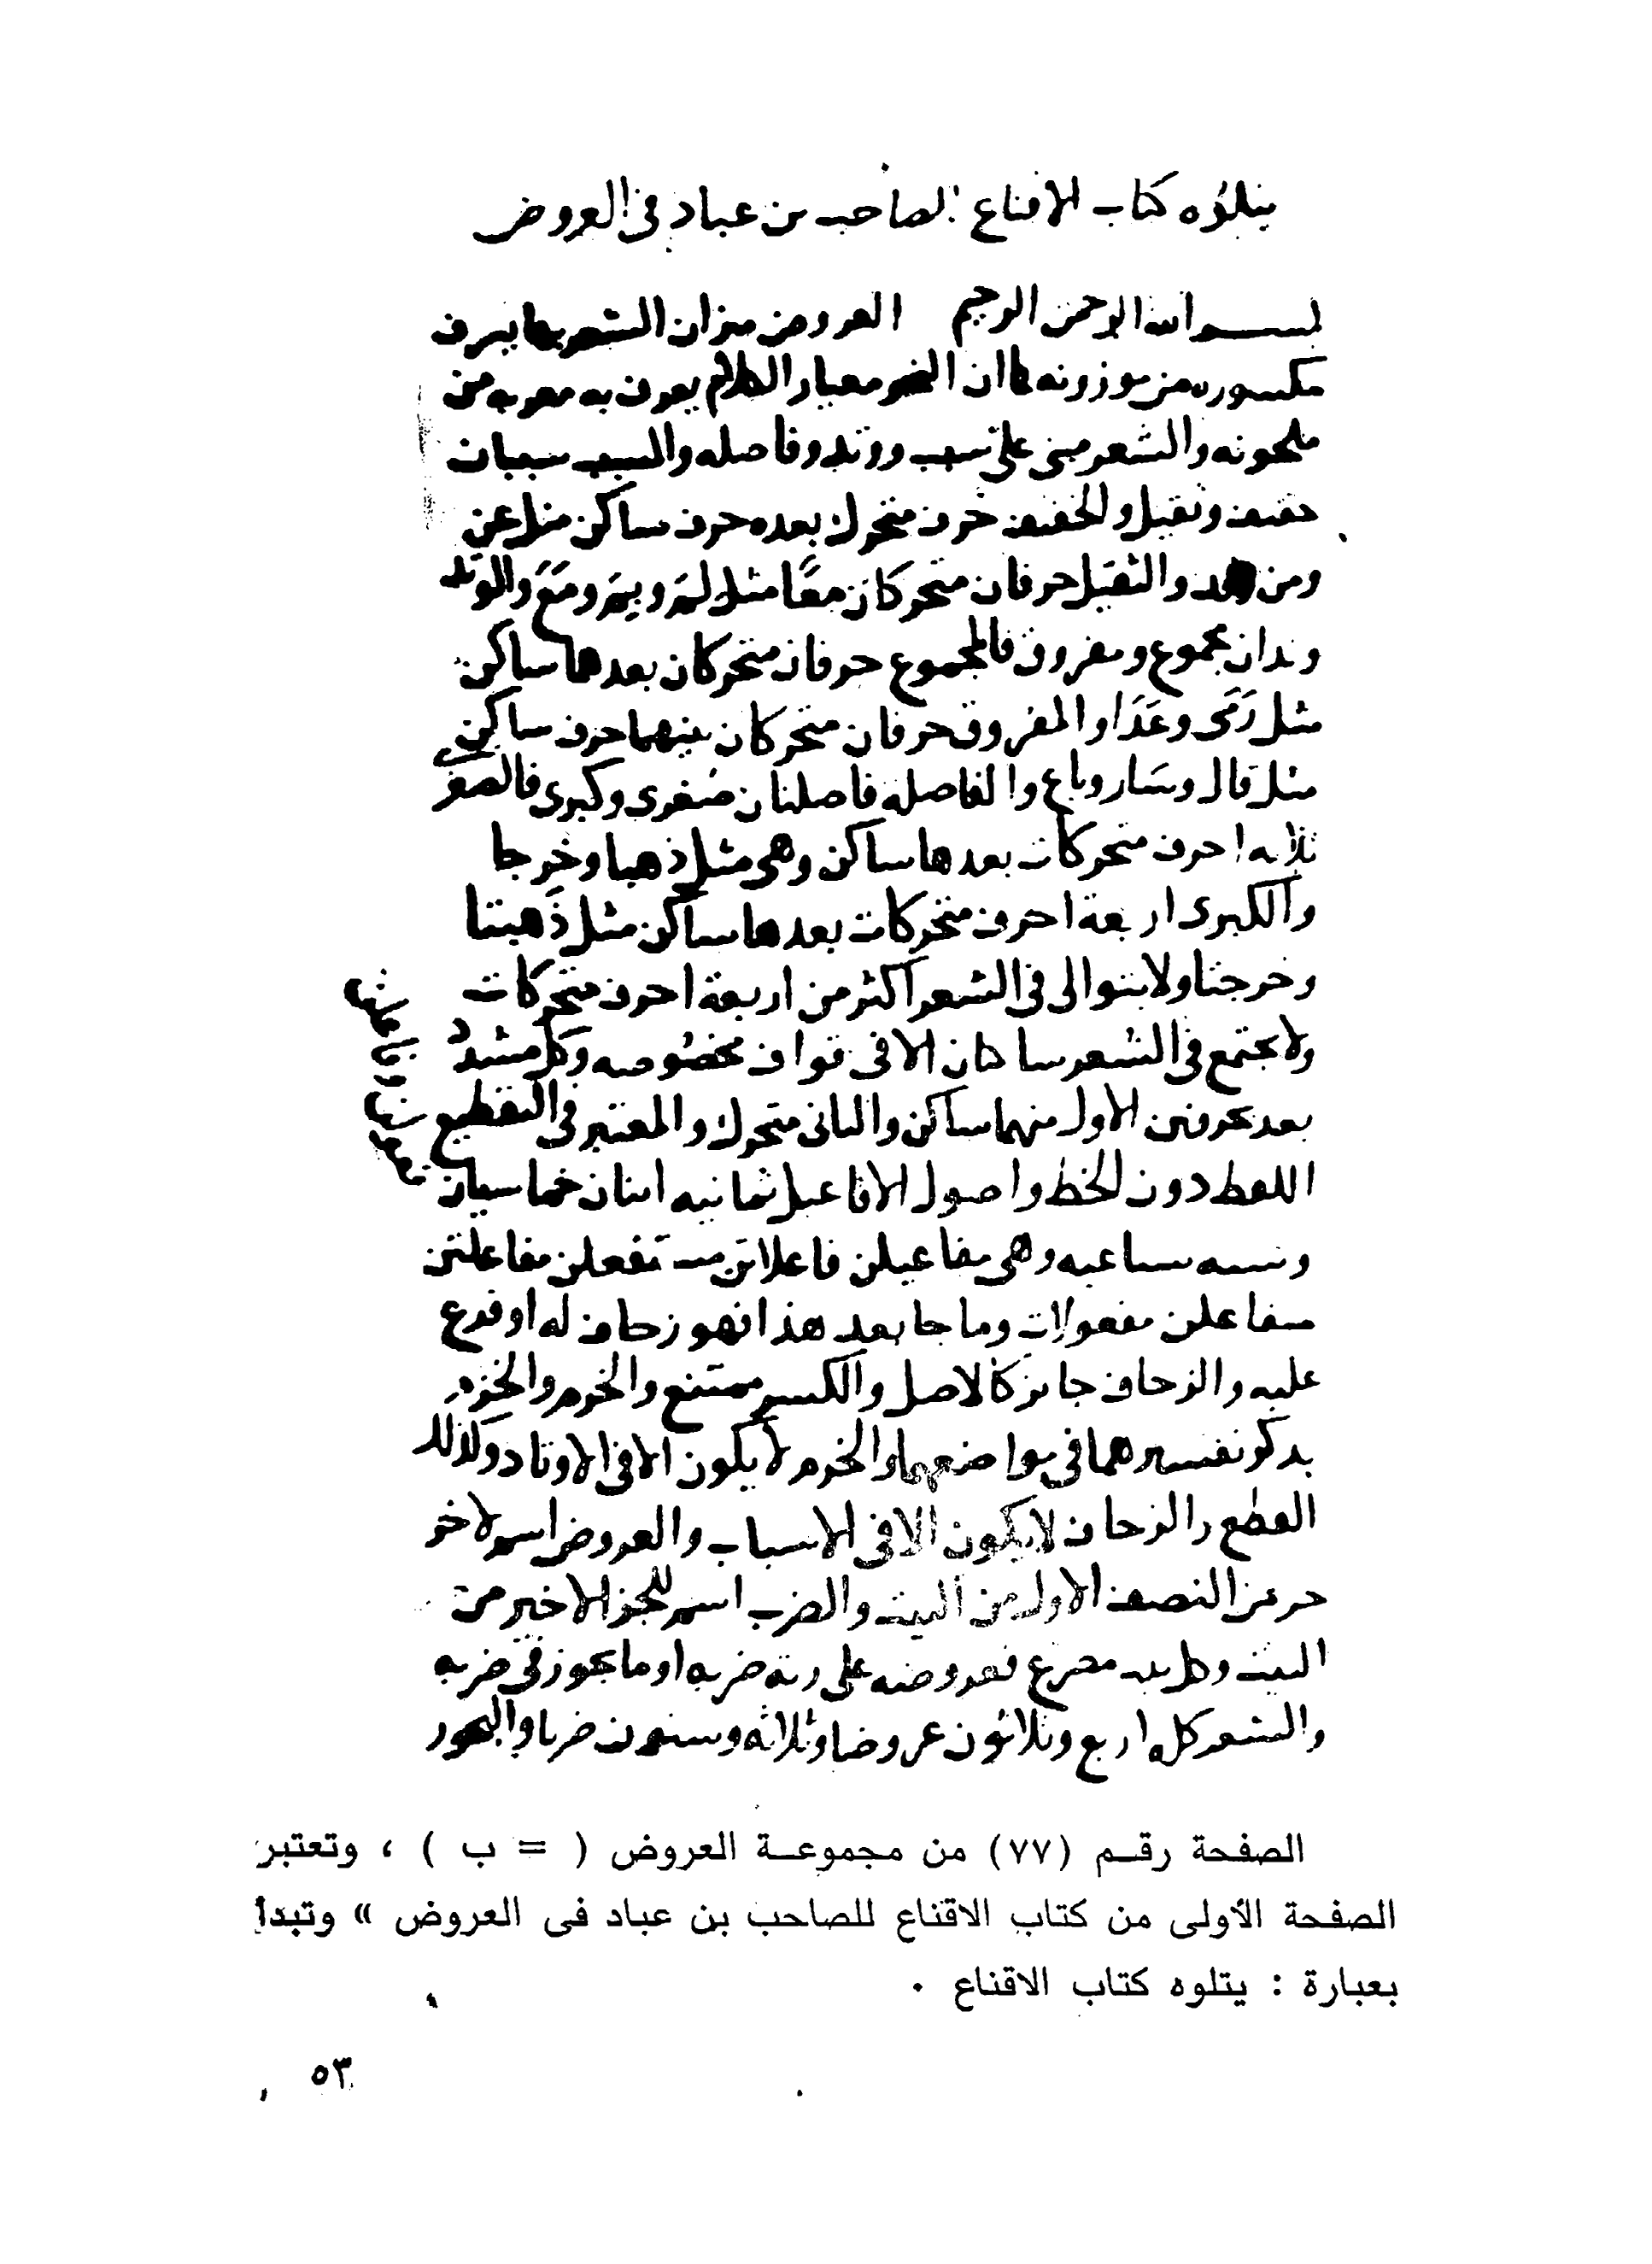 يتلوه كتاب الاقناع للصاحب بن عباد في العروض
بسم الله الرحمن الرحيم العروض ميزان الشعر بها يعرف
مكسوره من موزونه كما ان النحو معيار الكلام يعرف به معربه من
ملحونه والشعر مبني على سبب ووتد وفاصله والسبب سببان
خفيف وثقيل والخفيف حرف متحرك بعده حرف ساكن مثل عن
ومن وقد والثقيل حرفان متحركان معًا مثل لِمَ وبِمَ ومَعَ والوتد
وتدان مجموع ومفروق فالمجموع حرفان متحركان بعدهما ساكن
مثل رَمَى وعَدَا والمفروق حرفان متحركان بينهما حرف ساكن
مثل قال وسَار وباع والفاصله فاصلتان صُغرى وكبرى فالصغرى
ثلاثه احرف متحركات بعدها ساكن وهي مثل ذهبا وخرجا
والكبرى اربعة احرف متحركات بعدها ساكن مثل ذَهبتا
وخرجتا ولا يتوالى في الشعر اكثر من اربعة احرف متحركات
ولا يجتمع في الشعر ساكنان الا في قواف مخصُوصه وكل مشدد
يعد بحرفين الاول منهما ساكن والثاني متحرك والمعتبر في التقطيع
اللفظ دون الخط واصول الافاعيل ثمانيه اثنان خماسيان
وسته سباعيه وهي مفاعيلن فاعلاتن مستفعلن مفاعلتن
متفاعلن مفعولات وما جا بعد هذا فهو زحاف له او فرع
عليه والزحاف جايز كالاصل والكسر ممتنع والخرم والخزم
يذكر تفسيرهما في مواضعهما والخرم لا يكون الا في الاوتاد وكذلك
القطع والزحاف لا يكون الا في الاسباب والعروض اسم لاخر
جزء من النصف الاول من البيت والضرب اسم للجز الاخير من
البيت وكل بيت مصرع فعروضه على زنة ضربه او ما يجوز في ضربه
والشعر كله اربع وثلاثون عروضا وثلاثه وستون ضربا والبحور
الصفحة رقم (٧٧) من مجموعة العروض ( = ب ) ، وتعتبر
الصفحة الأولى من كتاب الاقناع للصاحب بن عباد فى العروض » وتبدأ
بعبارة : يتلوه كتاب الاقناع ٠
٥٣